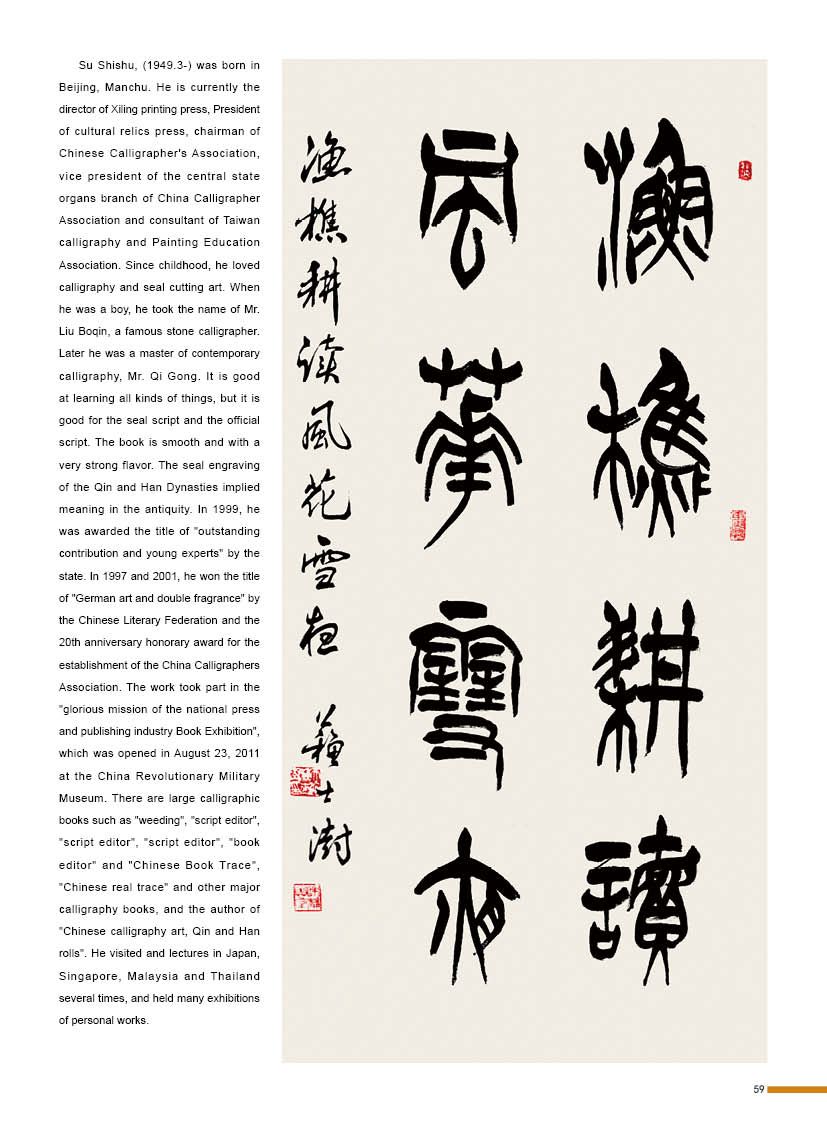 Su Shishu, (1949.3-) was born in
Beijing, Manchu. He is currently the
director of Xiling printing press, President
of cultural relics press, chairman of
Chinese Calligrapher's Association,
vice president of the central state
organs branch of China Calligrapher
Association and consultant of Taiwan
calligraphy and Painting Education
Association. Since childhood, he loved
calligraphy and seal cutting art. When
he was a boy, he took the name of Mr.
Liu Boqin, a famous stone calligrapher.
Later he was a master of contemporary
calligraphy, Mr. Qi Gong. It is good
at learning all kinds of things, but it is
good for the seal script and the official
script. The book is smooth and with a
very strong flavor. The seal engraving
of the Qin and Han Dynasties implied
meaning in the antiquity. In 1999, he
was awarded the title of "outstanding
contribution and young experts" by the
state. In 1997 and 2001, he won the title
of "German art and double fragrance" by
the Chinese Literary Federation and the
20th anniversary honorary award for the
establishment of the China Calligraphers
Association. The work took part in the
"glorious mission of the national press
and publishing industry Book Exhibition",
which was opened in August 23, 2011
at the China Revolutionary Military
Museum. There are large calligraphic
books such as "weeding", "script editor",
"script editor", "script editor", "book
editor" and "Chinese Book Trace",
"Chinese real trace" and other major
calligraphy books, and the author of
"Chinese calligraphy art, Qin and Han
rolls". He visited and lectures in Japan,
Singapore, Malaysia and Thailand
several times, and held many exhibitions
of personal works.
漁樵耕讀
風華雪夜
漁樵耕读風花雪夜 蘇士澍
59